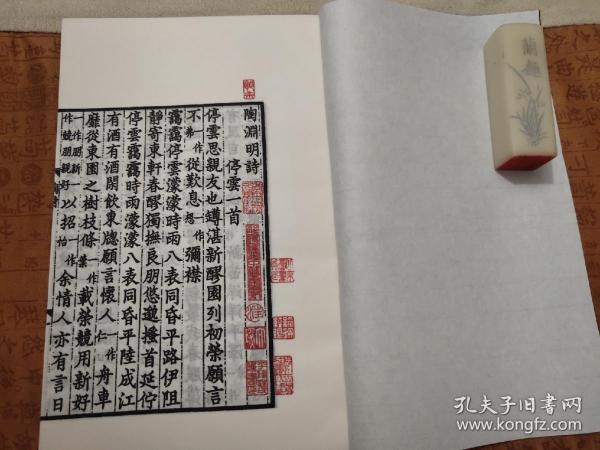 陶淵明詩
停雲一首
停雲思親友也罇湛新醪園列初榮願言
不一作弗從歎息一作想彌襟
靄靄停雲濛濛時雨八表同昏平路伊阻
靜寄東軒春醪獨撫良朋悠邈搔首延佇
停雲靄靄時雨濛濛八表同昏平陸成江
有酒有酒閒飲東牕願言懷人一作仁舟車
靡從東園之樹枝條一作葉載榮競用新好
一作朋新一作競朋親好以招一作怡余情人亦有言日
蘭
孔夫子旧书网
www.kongfz.com